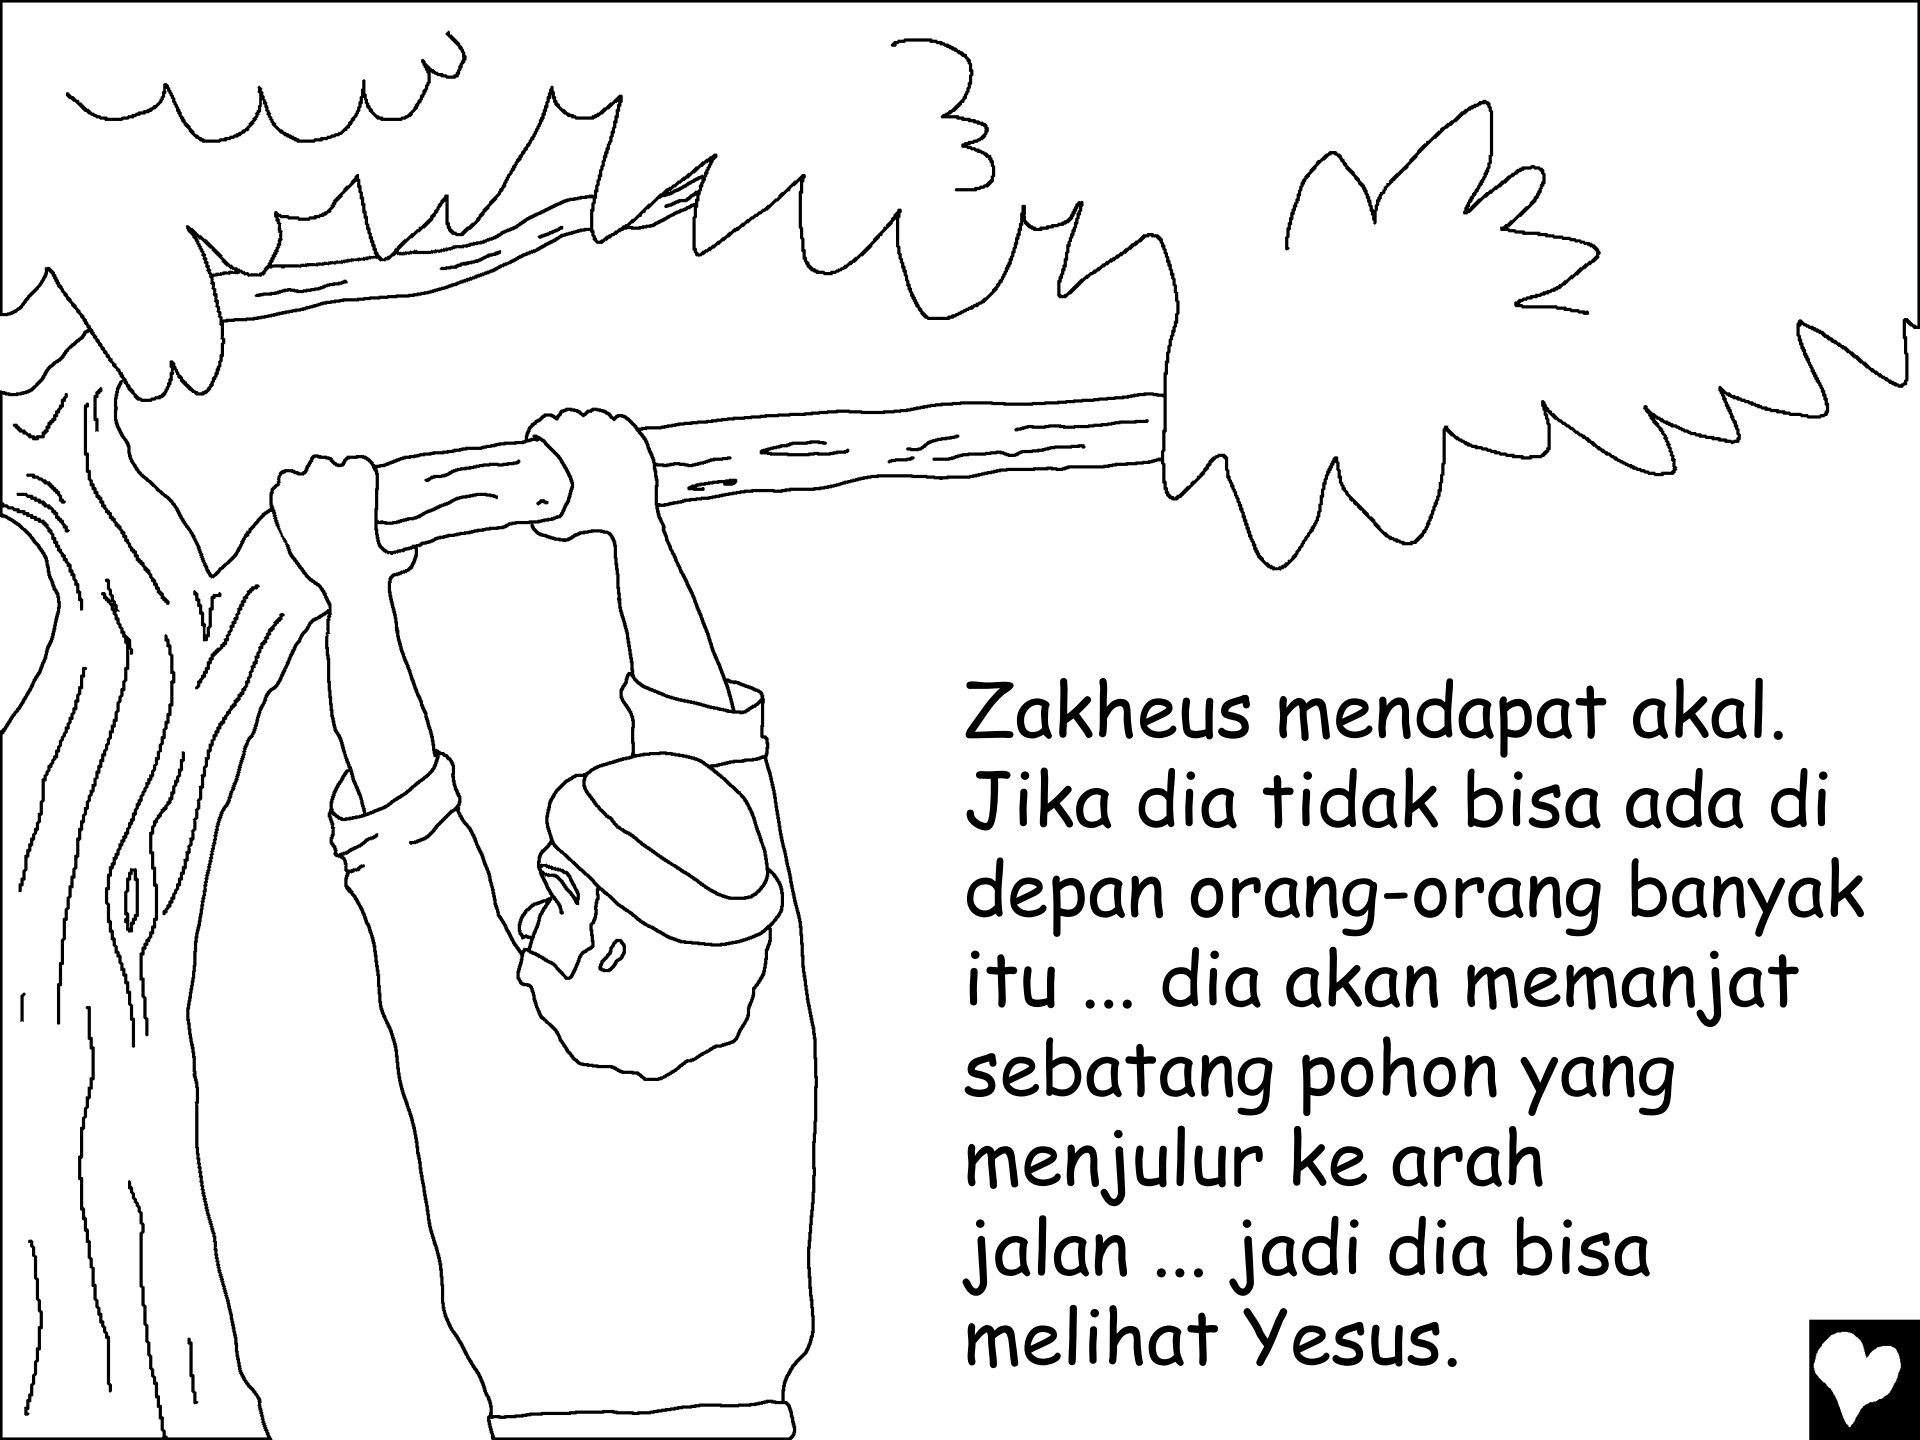 Zakheus mendapat akal.
Jika dia tidak bisa ada di
depan orang-orang banyak
itu ... dia akan memanjat
sebatang pohon yang
menjulur ke arah
jalan ... jadi dia bisa
melihat Yesus.